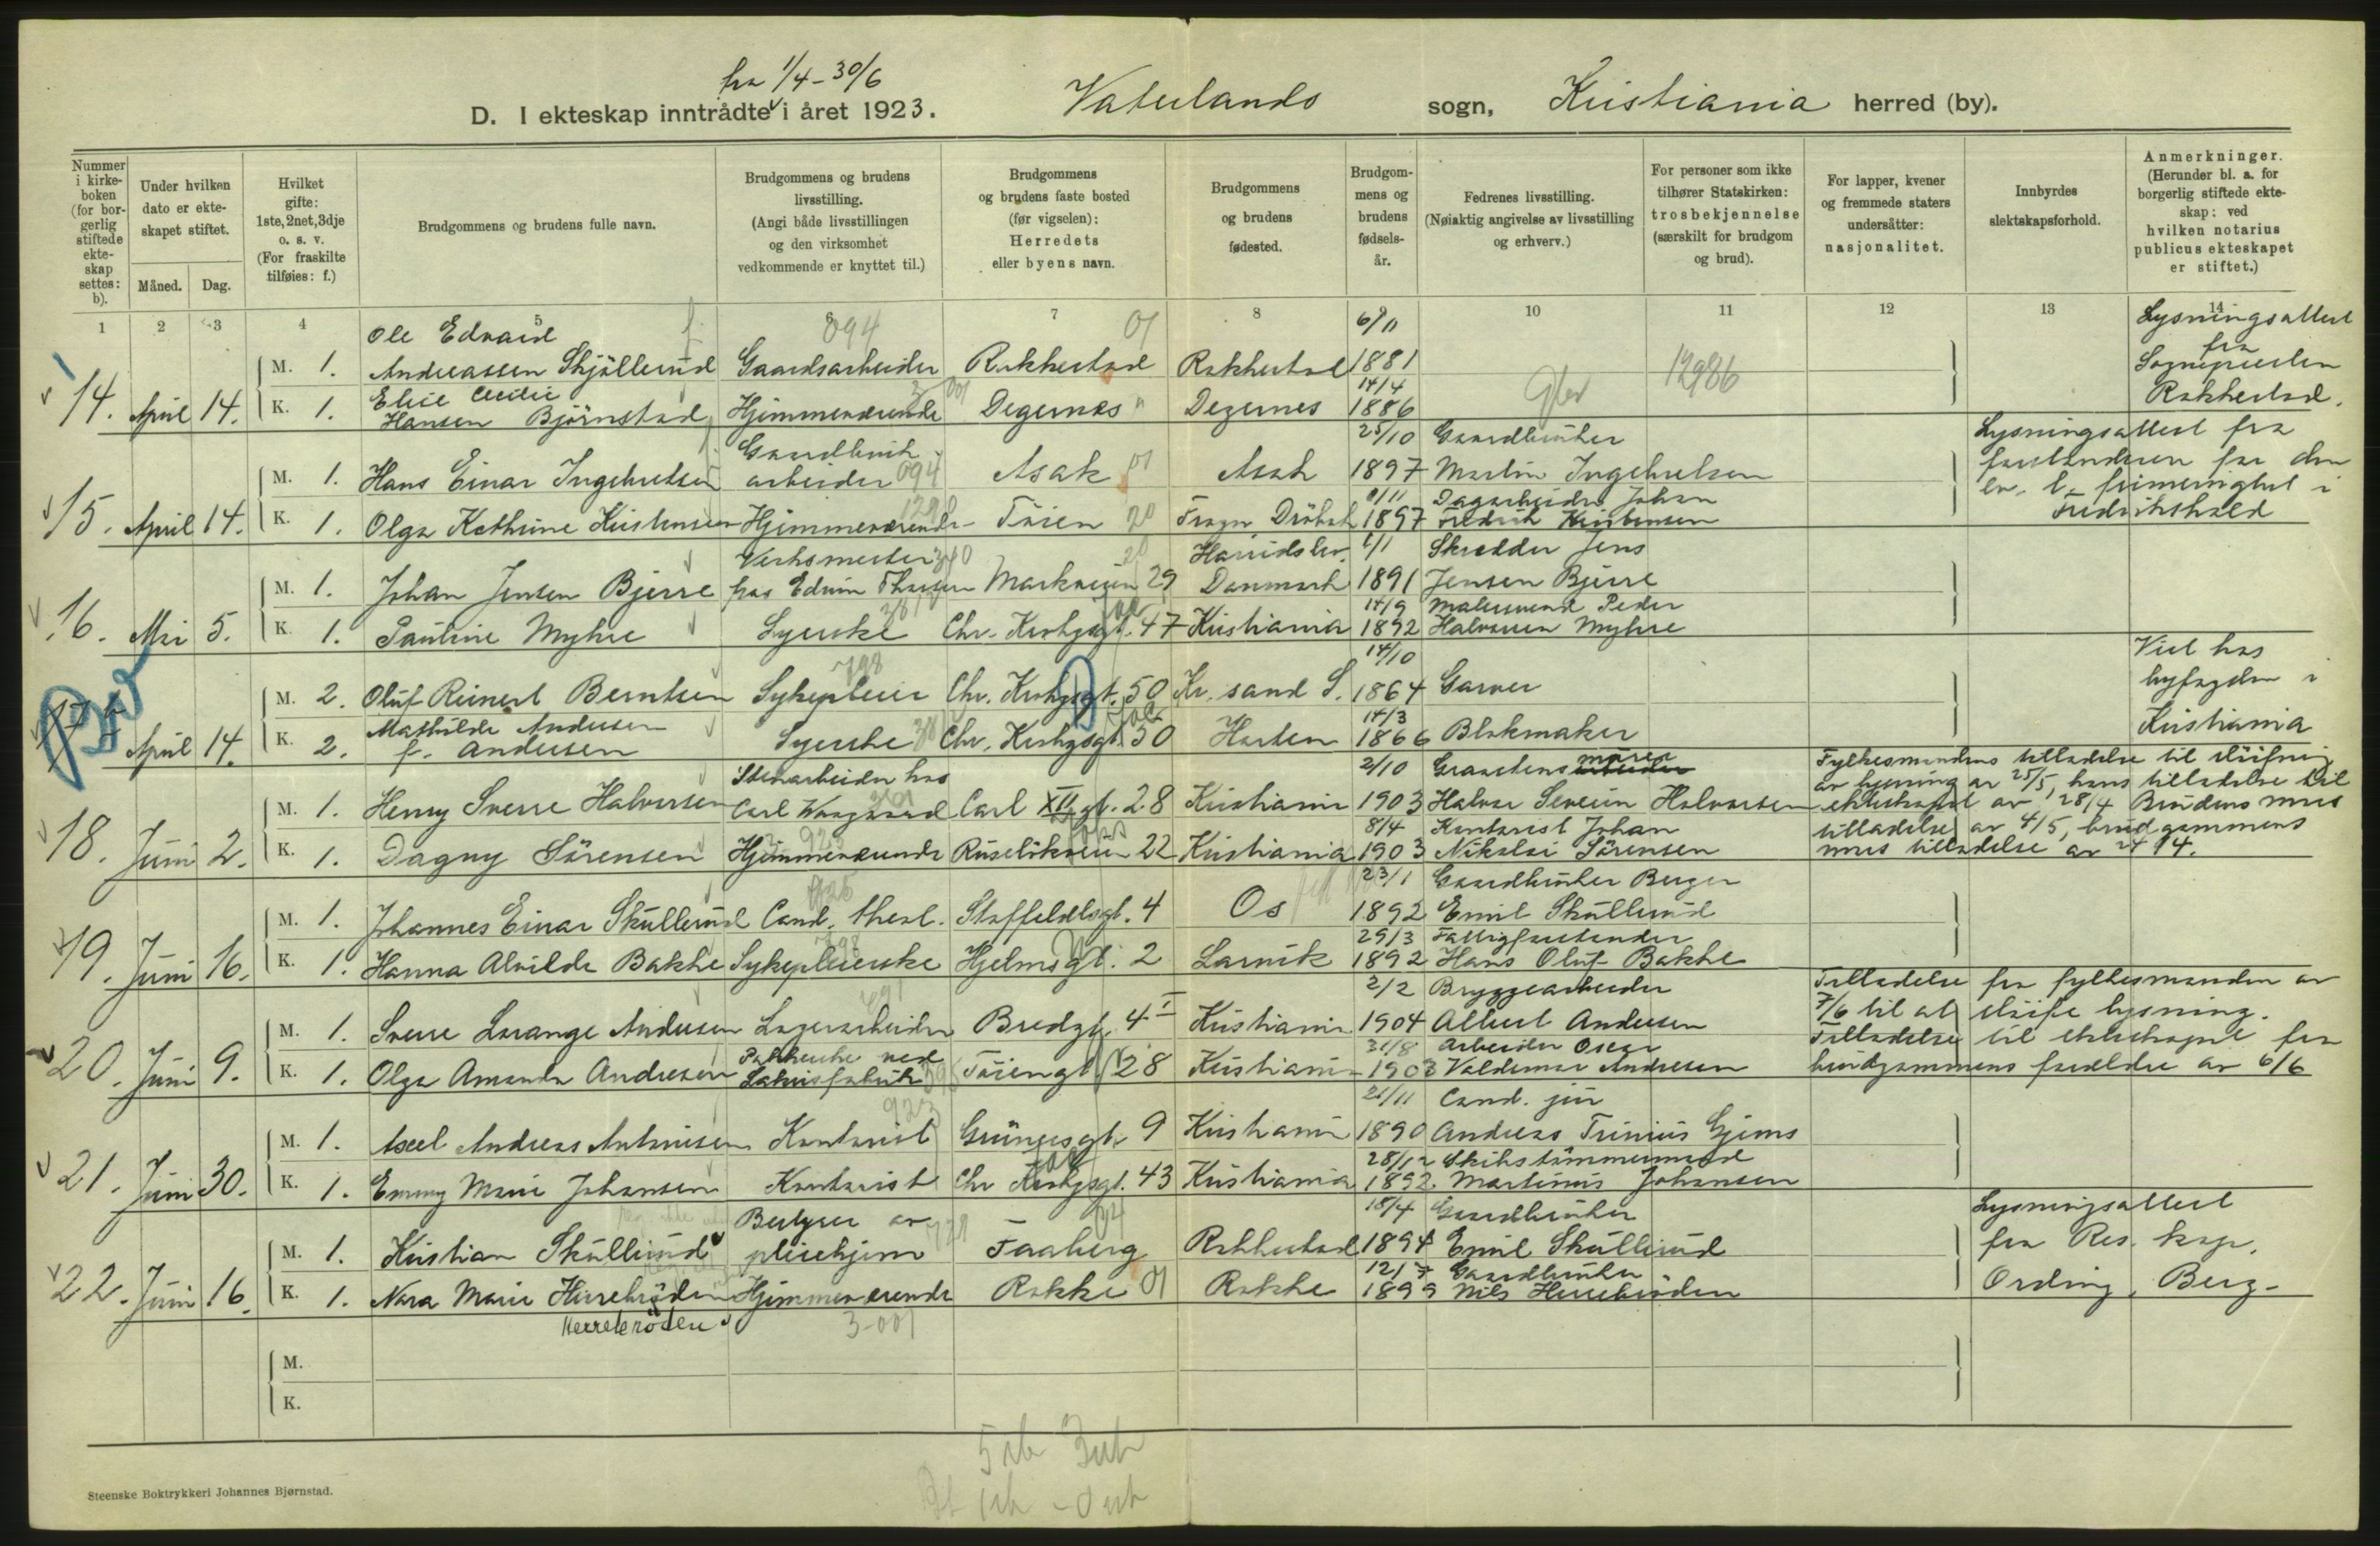 fra 1/4 - 30/6
D. I ekteskap inntrådte i året 1923. Vaterlands sogn, Kristiania herred (by).
Nummer i kirkeboken (for borgerlig stiftede ekteskap settes: b).
Under hvilken dato er ekteskapet stiftet.
Måned. Dag.
Hvilket gifte: 1ste, 2net, 3dje o. s. v. (For fraskilte tilføies: f.)
Brudgommens og brudens fulle navn.
Brudgommens og brudens livsstilling. (Angi både livsstillingen og den virksomhet vedkommende er knyttet til.)
Brudgommens og brudens faste bosted (før vigselen): Herredets eller byens navn.
Brudgommens og brudens fødested.
Brudgommens og brudens fødselsår.
Fedrenes livsstilling. (Nøiaktig angivelse av livsstilling og erhverv.)
For personer som ikke tilhører Statskirken: trosbekjennelse (særskilt for brudgom og brud).
For lapper, kvener og fremmede staters undersåtter: nasjonalitet.
Innbyrdes slektskapsforhold.
Anmerkninger. (Herunder bl. a. for borgerlig stiftede ekteskap: ved hvilken notarius publicus ekteskapet er stiftet.)
1 2 3 4 5 6 7 8 10 11 12 13 14
14. April 14.
M. 1. Ole Edvard Andreassen Skjöllerud Gaardsarbeider 094 Rakkestad 01 Rakkestad 6/11 1881 12986
K. 1. Elise Cecilie Hansen Björnstad Hjemmeværende Degernes Degernes 14/4 1886
Lysningsattest fra Sognepresten Rakkestad.
15. April 14.
M. 1. Hans Einar Ingebretsen Gaardbruk arbeider 094 Asak 01 Asak 25/10 1897 Gaardbruker Martin Ingebretsen
K. 1. Olga Kathrine Kristensen Hjemmeværende Töien 20 Frogn Dröbak 1897 Dagarbeider Johan Fredrik Kristensen
Lysningsattest fra forstanderen for den ev. l. frimenighet i Fredrikshald
16. Mai 5.
M. 1. Johan Jensen Bjerre Verksmester hos Edvin Thorsen Markveien 29 Danmark 1891 Skredder Jens Jensen Bjerre
K. 1. Pauline Myhre Syerske Chr. Krohgsgt. 47 Kristiania 14/9 1892 Malersvend Peder Halvorsen Myhre
April 14.
M. 2. Oluf Reinert Berntsen Sykepleier 798 Chr. Krohgsgt. 50 Kr. sand S. 14/10 1864 Garver
K. 2. Mathilde Andersen f. Andersen Syerske Chr. Krohgsgt. 50 Horten 14/3 1866 Blokmaker
Viet hos byfogden i Kristiania
18. Juni 2.
M. 1. Henry Sverre Halvorsen Stenarbeider hos Carl XII gt. 28 Kristiania 2/10 1903 Halvor Severin Halvorsen
K. 1. Dagny Sörensen Hjemmeværende Ruselökveien 22 Kristiania 8/4 1903 Kontorist Johan Nikolai Sörensen
Fylkesmandens tilladelse til sløifning av lysning av 25/5, hans tilladelse til ekteskapet av 28/4 Brudens mors tilladelse av 4/5, brudgommens mors tilladelse av 24/4.
19. Juni 16.
M. 1. Johannes Einar Skullerud Cand. theol. Staffeldtsgt. 4 Os 23/1 1892 Gaardbruker Berger Emil Skullerud
K. 1. Hanna Alvilde Bakke Sykepleierske Hjelmsgt. 2 Larvik 29/3 1892 Fattigforstander Hans Oluf Bakke
20. Juni 9.
M. 1. Sverre Lorange Andersen Lagerarbeider Bredgt. 4 I Kristiania 2/2 1904 Bryggearbeider Albert Andersen
K. 1. Olga Amanda Andresen Pakkerske ved Töiengt 28 Kristiania 31/8 1903 Arbeider Oscar Valdemar Andresen
Tilladelse fra fylkesmanden av 7/6 til at sløife lysning. Tilladelse til ekteskapet fra brudgommens forældre av 6/6
21. Juni 30.
M. 1. Axel Andreas Antonisen Kontorist 923 Grünersgt. 9 Kristiania 21/11 1890 Cand. jur Andreas Trinius Gjems
K. 1. Emmy Marie Johansen Kontorist Chr Krohgsgt. 43 Kristiania 28/12 1892 Skibstömmermand Martinus Johansen
22. Juni 16.
M. 1. Kristian Skullerud Bestyrer av pleiehjem Faaberg Rakkestad 18/4 1894 Gaardbruker Emil Skullerud
K. 1. Nora Marie Herrebröden Hjemmeværende Rokke 01 Rokke 1899 Gaardbruker Nils Herrebröden
Herrebröden 3-001
Lysningsattest fra Res. kap. Ording, Berg.
M.
K.
Steenske Boktrykkeri Johannes Bjørnstad.